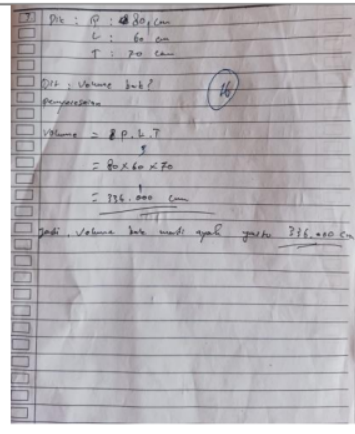 7 Dik : P : 80 cm
L : 60 cm
T : 70 cm
Dit : Volume bak?
16
Penyelesaian
Volume = P. L. T
= 80 x 60 x 70
= 336.000 cm
Jadi, Volume bak mandi ayah yaitu 336.000 cm